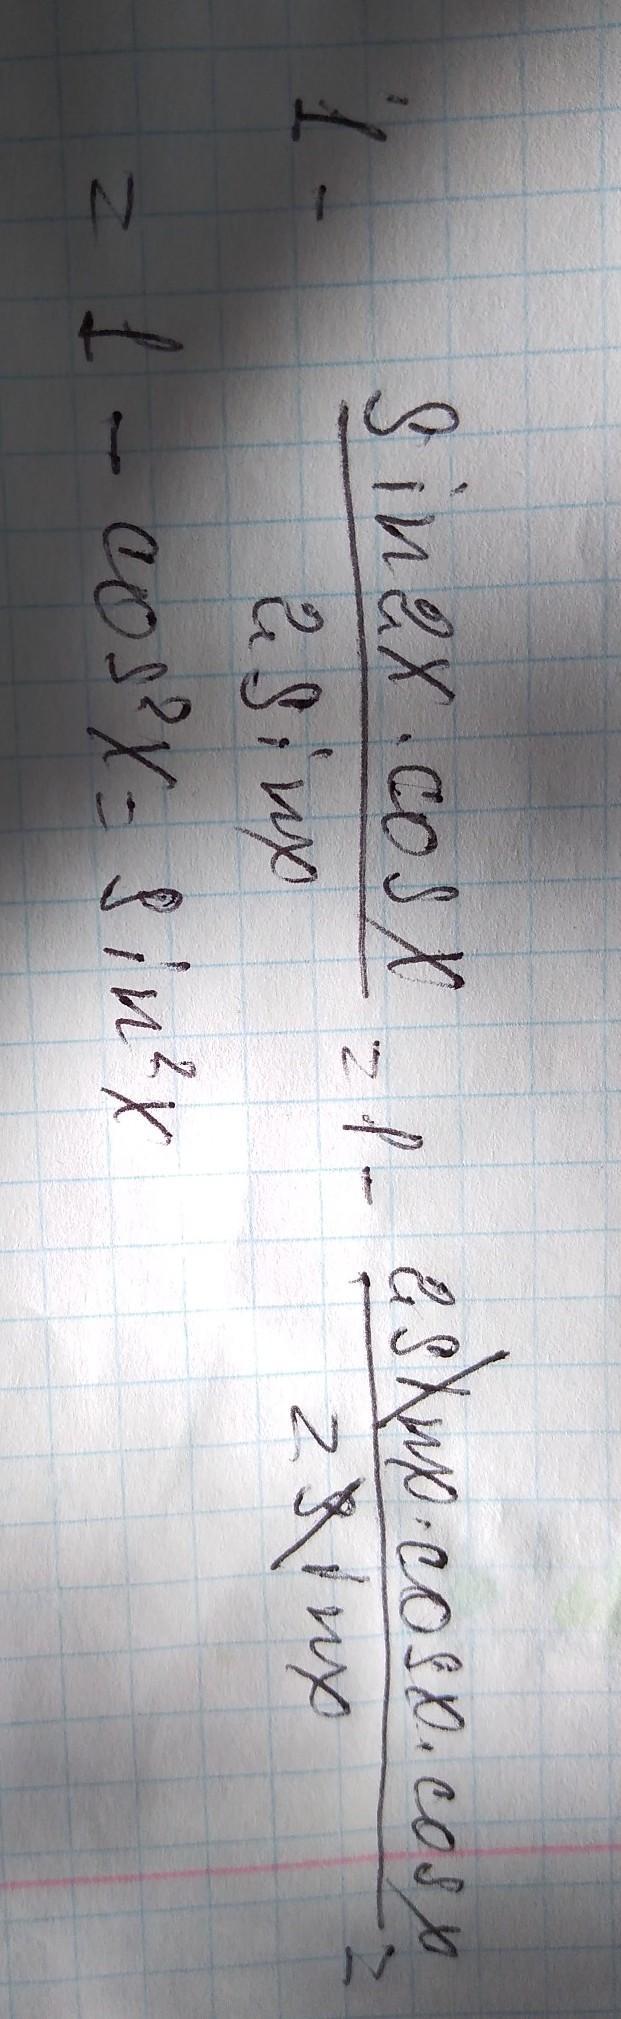 1 - sin2x · cosx / 2sinx = 1 - 2sinx · cosx · cosx / 2sinx =
= 1 - cos²x = sin²x